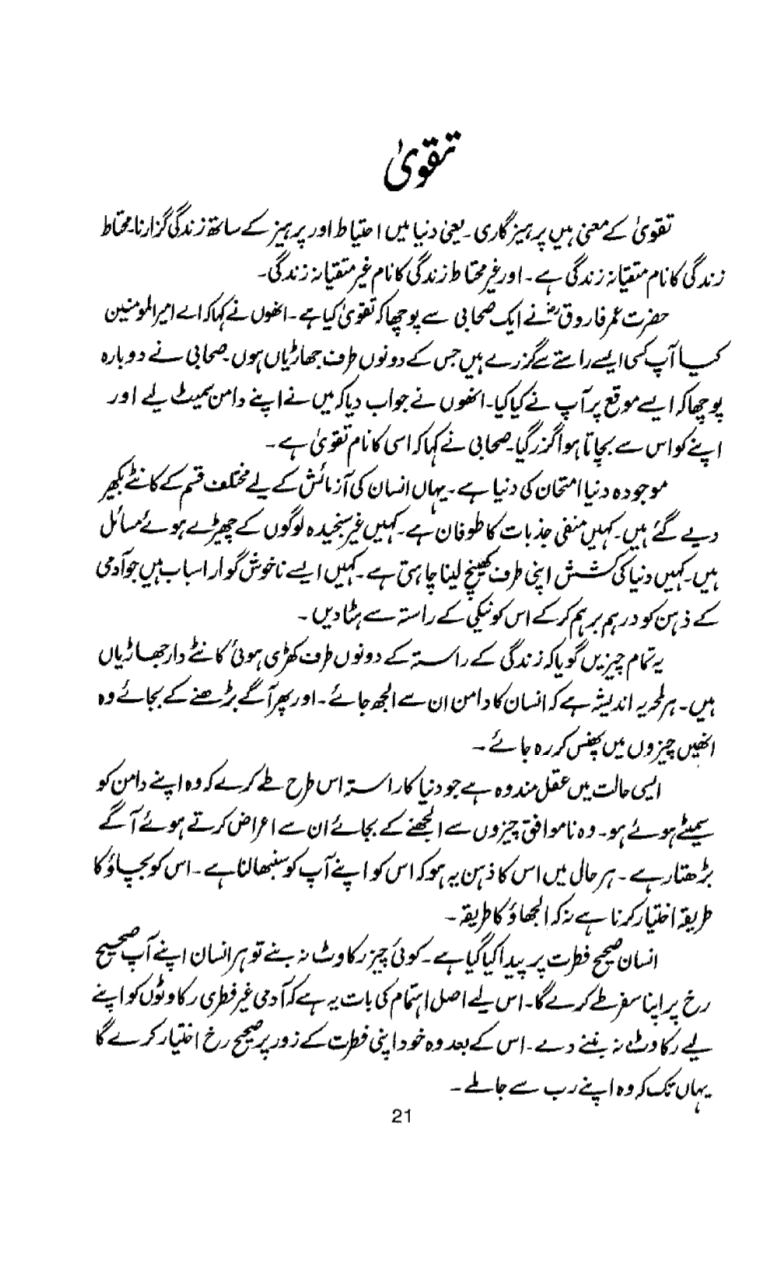 تقویٰ
تقویٰ کے معنی ہیں پرہیزگاری۔ یعنی دنیا میں احتیاط اور پرہیز کے ساتھ زندگی گزارنا۔ محتاط
زندگی کا نام متقیانہ زندگی ہے۔ اور غیر محتاط زندگی کا نام غیر متقیانہ زندگی۔
حضرت عمر فاروقؓ نے ایک صحابی سے پوچھا کہ تقویٰ کیا ہے۔ انھوں نے کہا کہ اے امیر المومنین
کیا آپ کسی ایسے راستے سے گزرے ہیں جس کے دونوں طرف جھاڑیاں ہوں۔ صحابی نے دوبارہ
پوچھا کہ ایسے موقع پر آپ نے کیا کیا۔ انھوں نے جواب دیا کہ میں نے اپنے دامن سمیٹ لیے اور
اپنے کو اس سے بچاتا ہوا گزر گیا۔ صحابی نے کہا کہ اسی کا نام تقویٰ ہے۔
موجودہ دنیا امتحان کی دنیا ہے۔ یہاں انسان کی آزمائش کے لیے مختلف قسم کے کانٹے بکھیر
دیے گئے ہیں۔ کہیں منفی جذبات کا طوفان ہے۔ کہیں غیر سنجیدہ لوگوں کے چھیڑے ہوئے مسائل
ہیں۔ کہیں دنیا کی کشش اپنی طرف کھینچ لینا چاہتی ہے۔ کہیں ایسے ناخوش گوار اسباب ہیں جو آدمی
کے ذہن کو درہم برہم کر کے اس کو نیکی کے راستہ سے ہٹا دیں۔
یہ تمام چیزیں گویا کہ زندگی کے راستہ کے دونوں طرف کھڑی ہوئی کانٹے دار جھاڑیاں
ہیں۔ ہر لمحہ یہ اندیشہ ہے کہ انسان کا دامن ان سے الجھ جائے۔ اور پھر آگے بڑھنے کے بجائے وہ
انھیں چیزوں میں پھنس کر رہ جائے۔
ایسی حالت میں عقل مند وہ ہے جو دنیا کا راستہ اس طرح طے کرے کہ وہ اپنے دامن کو
سمیٹے ہوئے ہو۔ وہ ناموافق چیزوں سے الجھنے کے بجائے ان سے اعراض کرتے ہوئے آگے
بڑھتا رہے۔ ہر حال میں اس کا ذہن یہ ہو کہ اس کو اپنے آپ کو سنبھالنا ہے۔ اس کو بچاؤ کا
طریقہ اختیار کرنا ہے نہ کہ الجھاؤ کا طریقہ۔
انسان صحیح فطرت پر پیدا کیا گیا ہے۔ کوئی چیز رکاوٹ نہ بنے تو ہر انسان اپنے آپ صحیح
رخ پر اپنا سفر طے کرے گا۔ اس لیے اصل اہتمام کی بات یہ ہے کہ آدمی غیر فطری رکاوٹوں کو اپنے
لیے رکاوٹ نہ بننے دے۔ اس کے بعد وہ خود اپنی فطرت کے زور پر صحیح رخ اختیار کرے گا
یہاں تک کہ وہ اپنے رب سے جا ملے۔
21